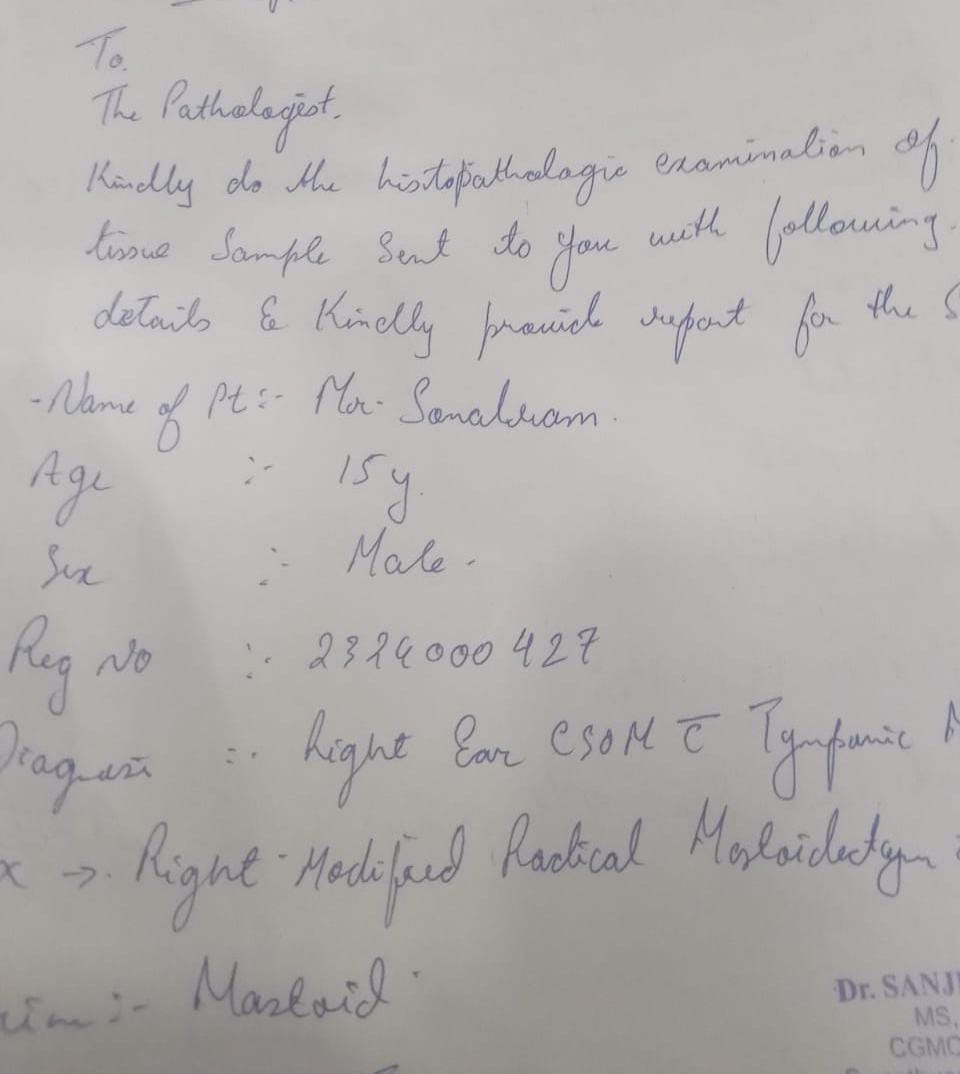 To.
The Pathologist.
Kindly do the histopathologic examination of
tissue Sample Sent to you with following.
details & Kindly provide report for the S
- Name of Pt :- Mr. Sonaluram.
Age :- 15 y.
Sex :- Male.
Reg No :- 2324000427
Diagnosis :- Right Ear CSOM c̄ Tympanic
x → Right Modified Radical Mastoidectomy
:- Mastoid
Dr. SANJ
MS,
CGMC